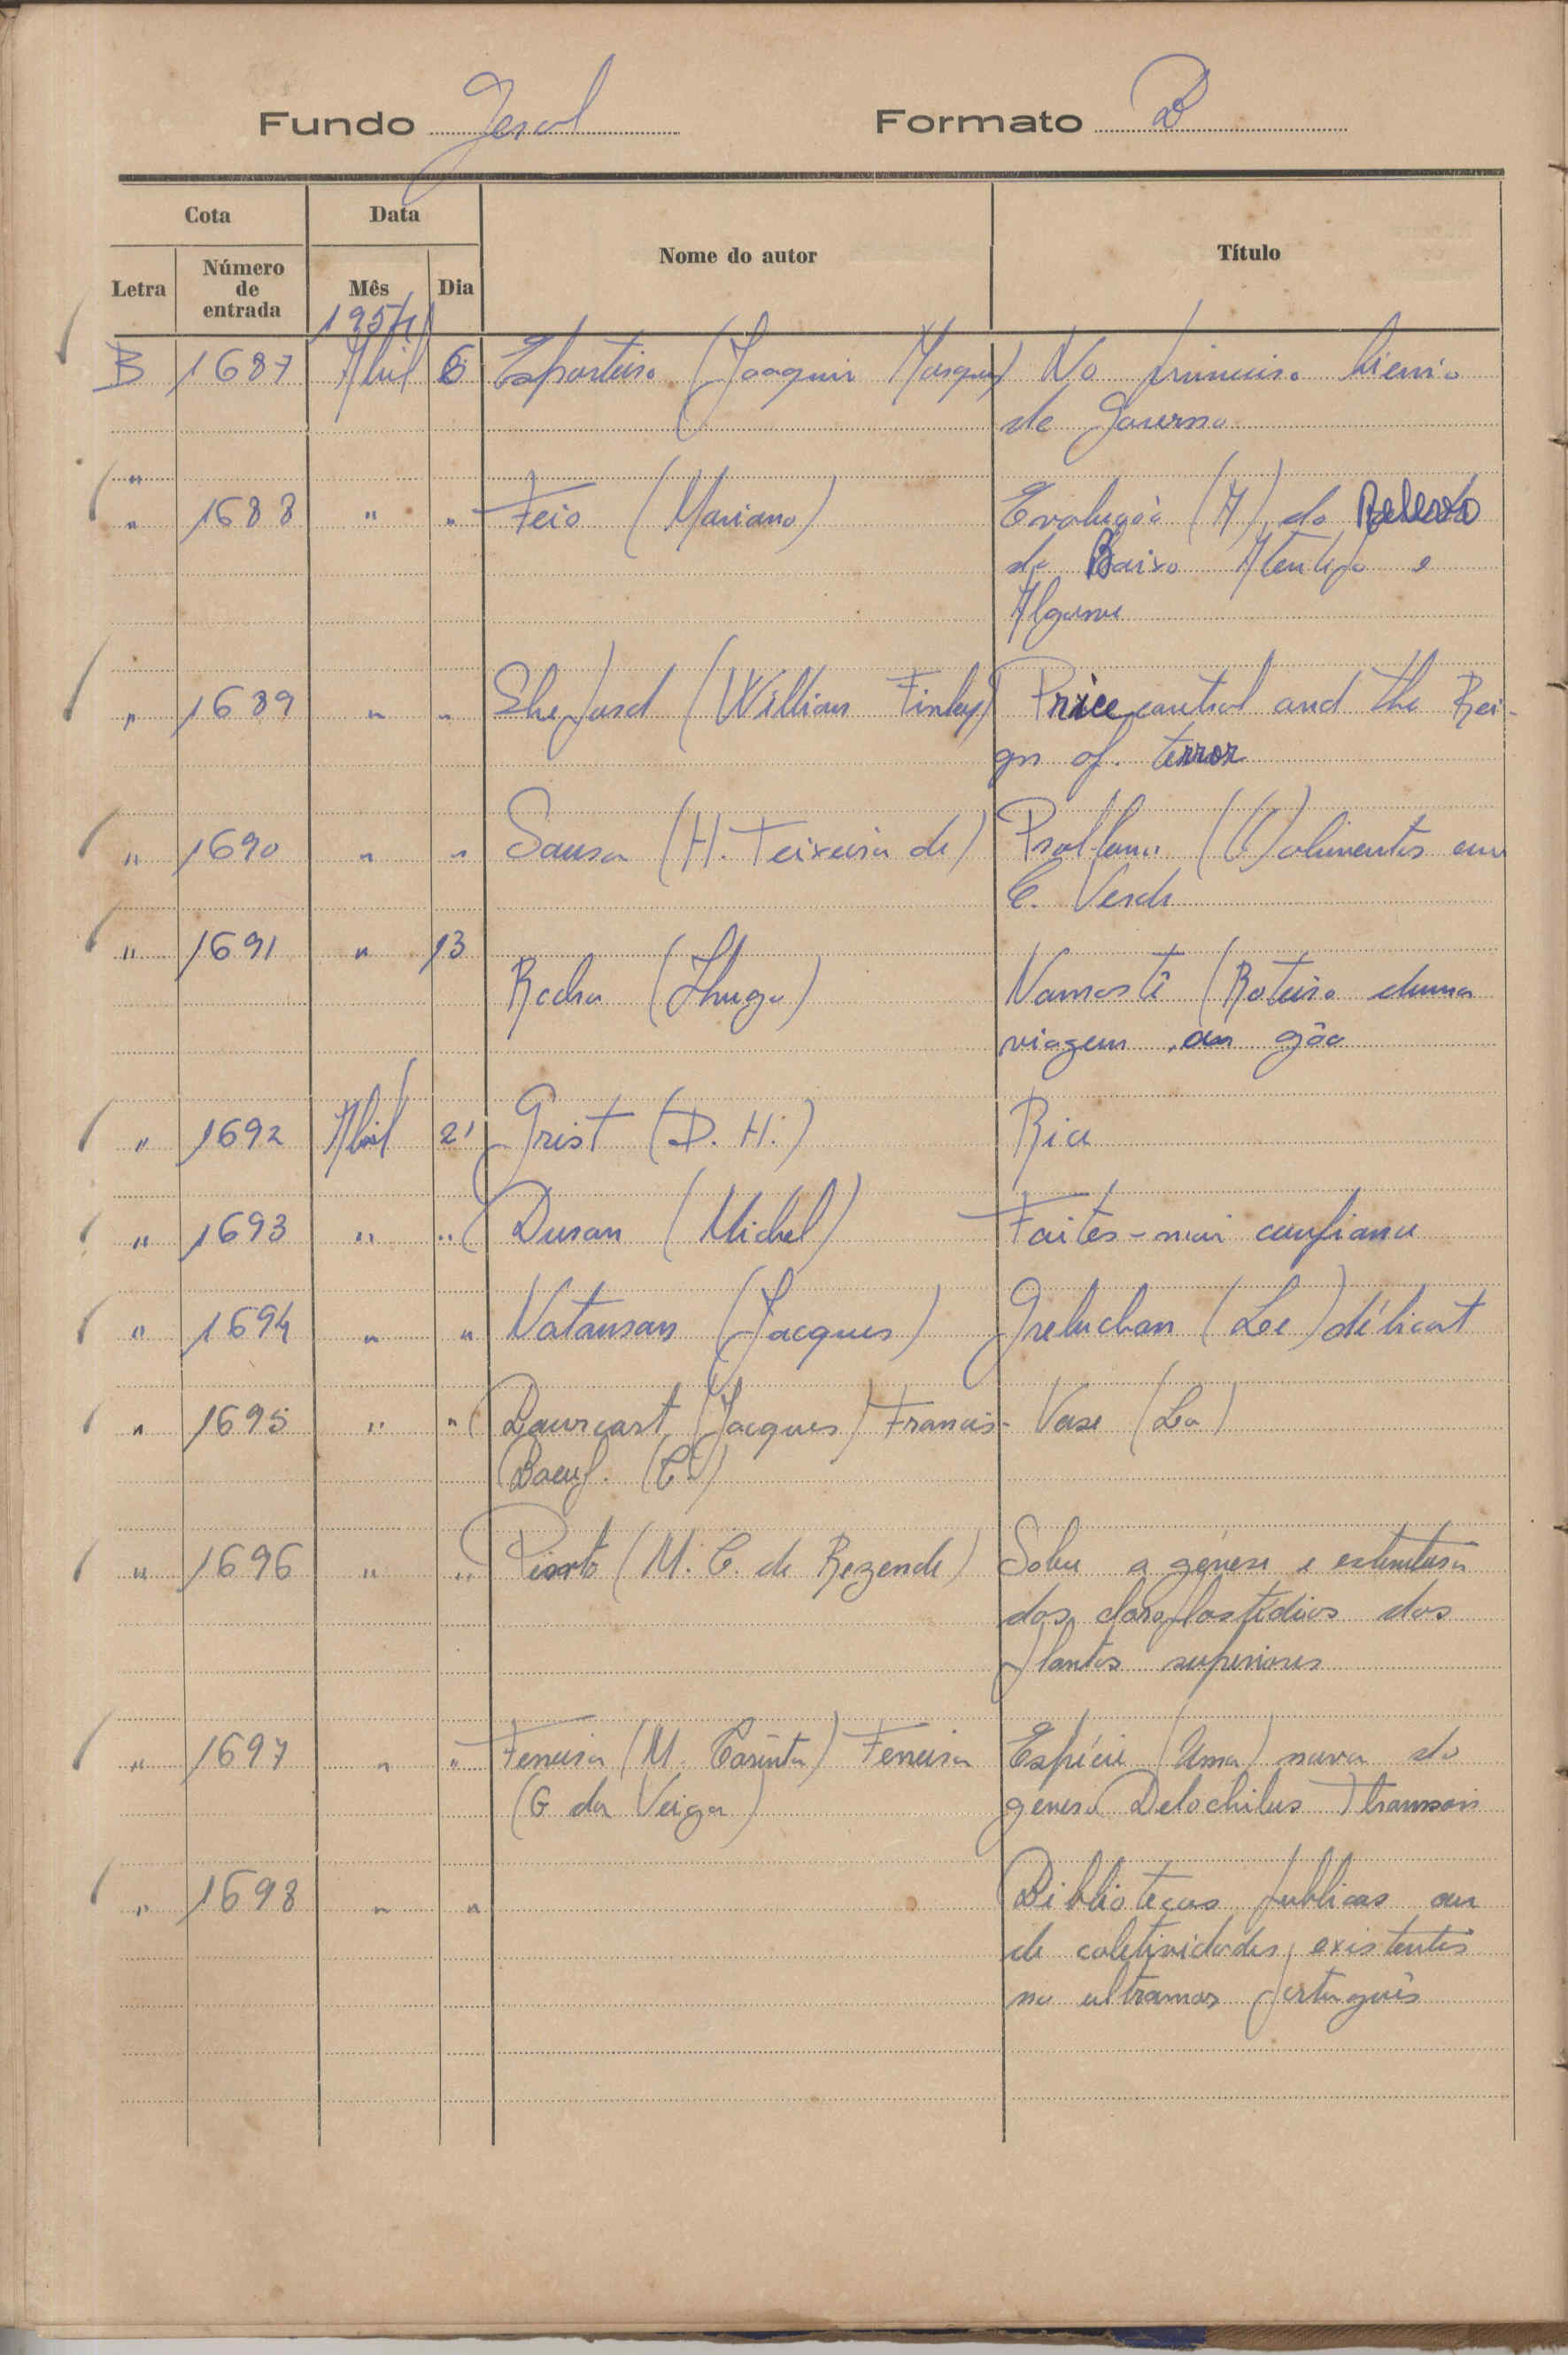 Fundo Geral Formato B
Cota Data Nome do autor Título
Letra Número de entrada Mês Dia
1954
B 1687 Abril 6 Esparteiro (Joaquim Marques) No primeiro biénio
de Governo
"
" 1688 " " Feio (Mariano) Evolução (A) do Relevo
do Baixo Alentejo e
Algarve
" 1689 " " Shepard (William Finley) Price control and the Rei-
gn of terror
" 1690 " " Sousa (H. Teixeira de) Problema (O) alimentos em
C. Verde
" 1691 " 13
Rocha (Hugo) Namastê (Roteiro duma
viagem a Gôa
" 1692 Abril 21 Grist (D. H.) Rice
" 1693 " " Duran (Michel) Faites-moi confiance
" 1694 " " Natanson (Jacques) Greluchon (Le) délicat
" 1695 " " Bourcart (Jacques) Francis- Vase (La)
Boeuf. (C.)
" 1696 " " Pinto (M. C. de Rezende) Sobre a génese e estrutura
dos cloroplastídios das
plantas superiores
" 1697 " " Ferreira (M. Corinta) Ferreira Espécie (Uma) nova do
(G da Veiga) género Delochilus
" 1698 " " Bibliotecas publicas ou
de coletividades, existentes
no ultramar português